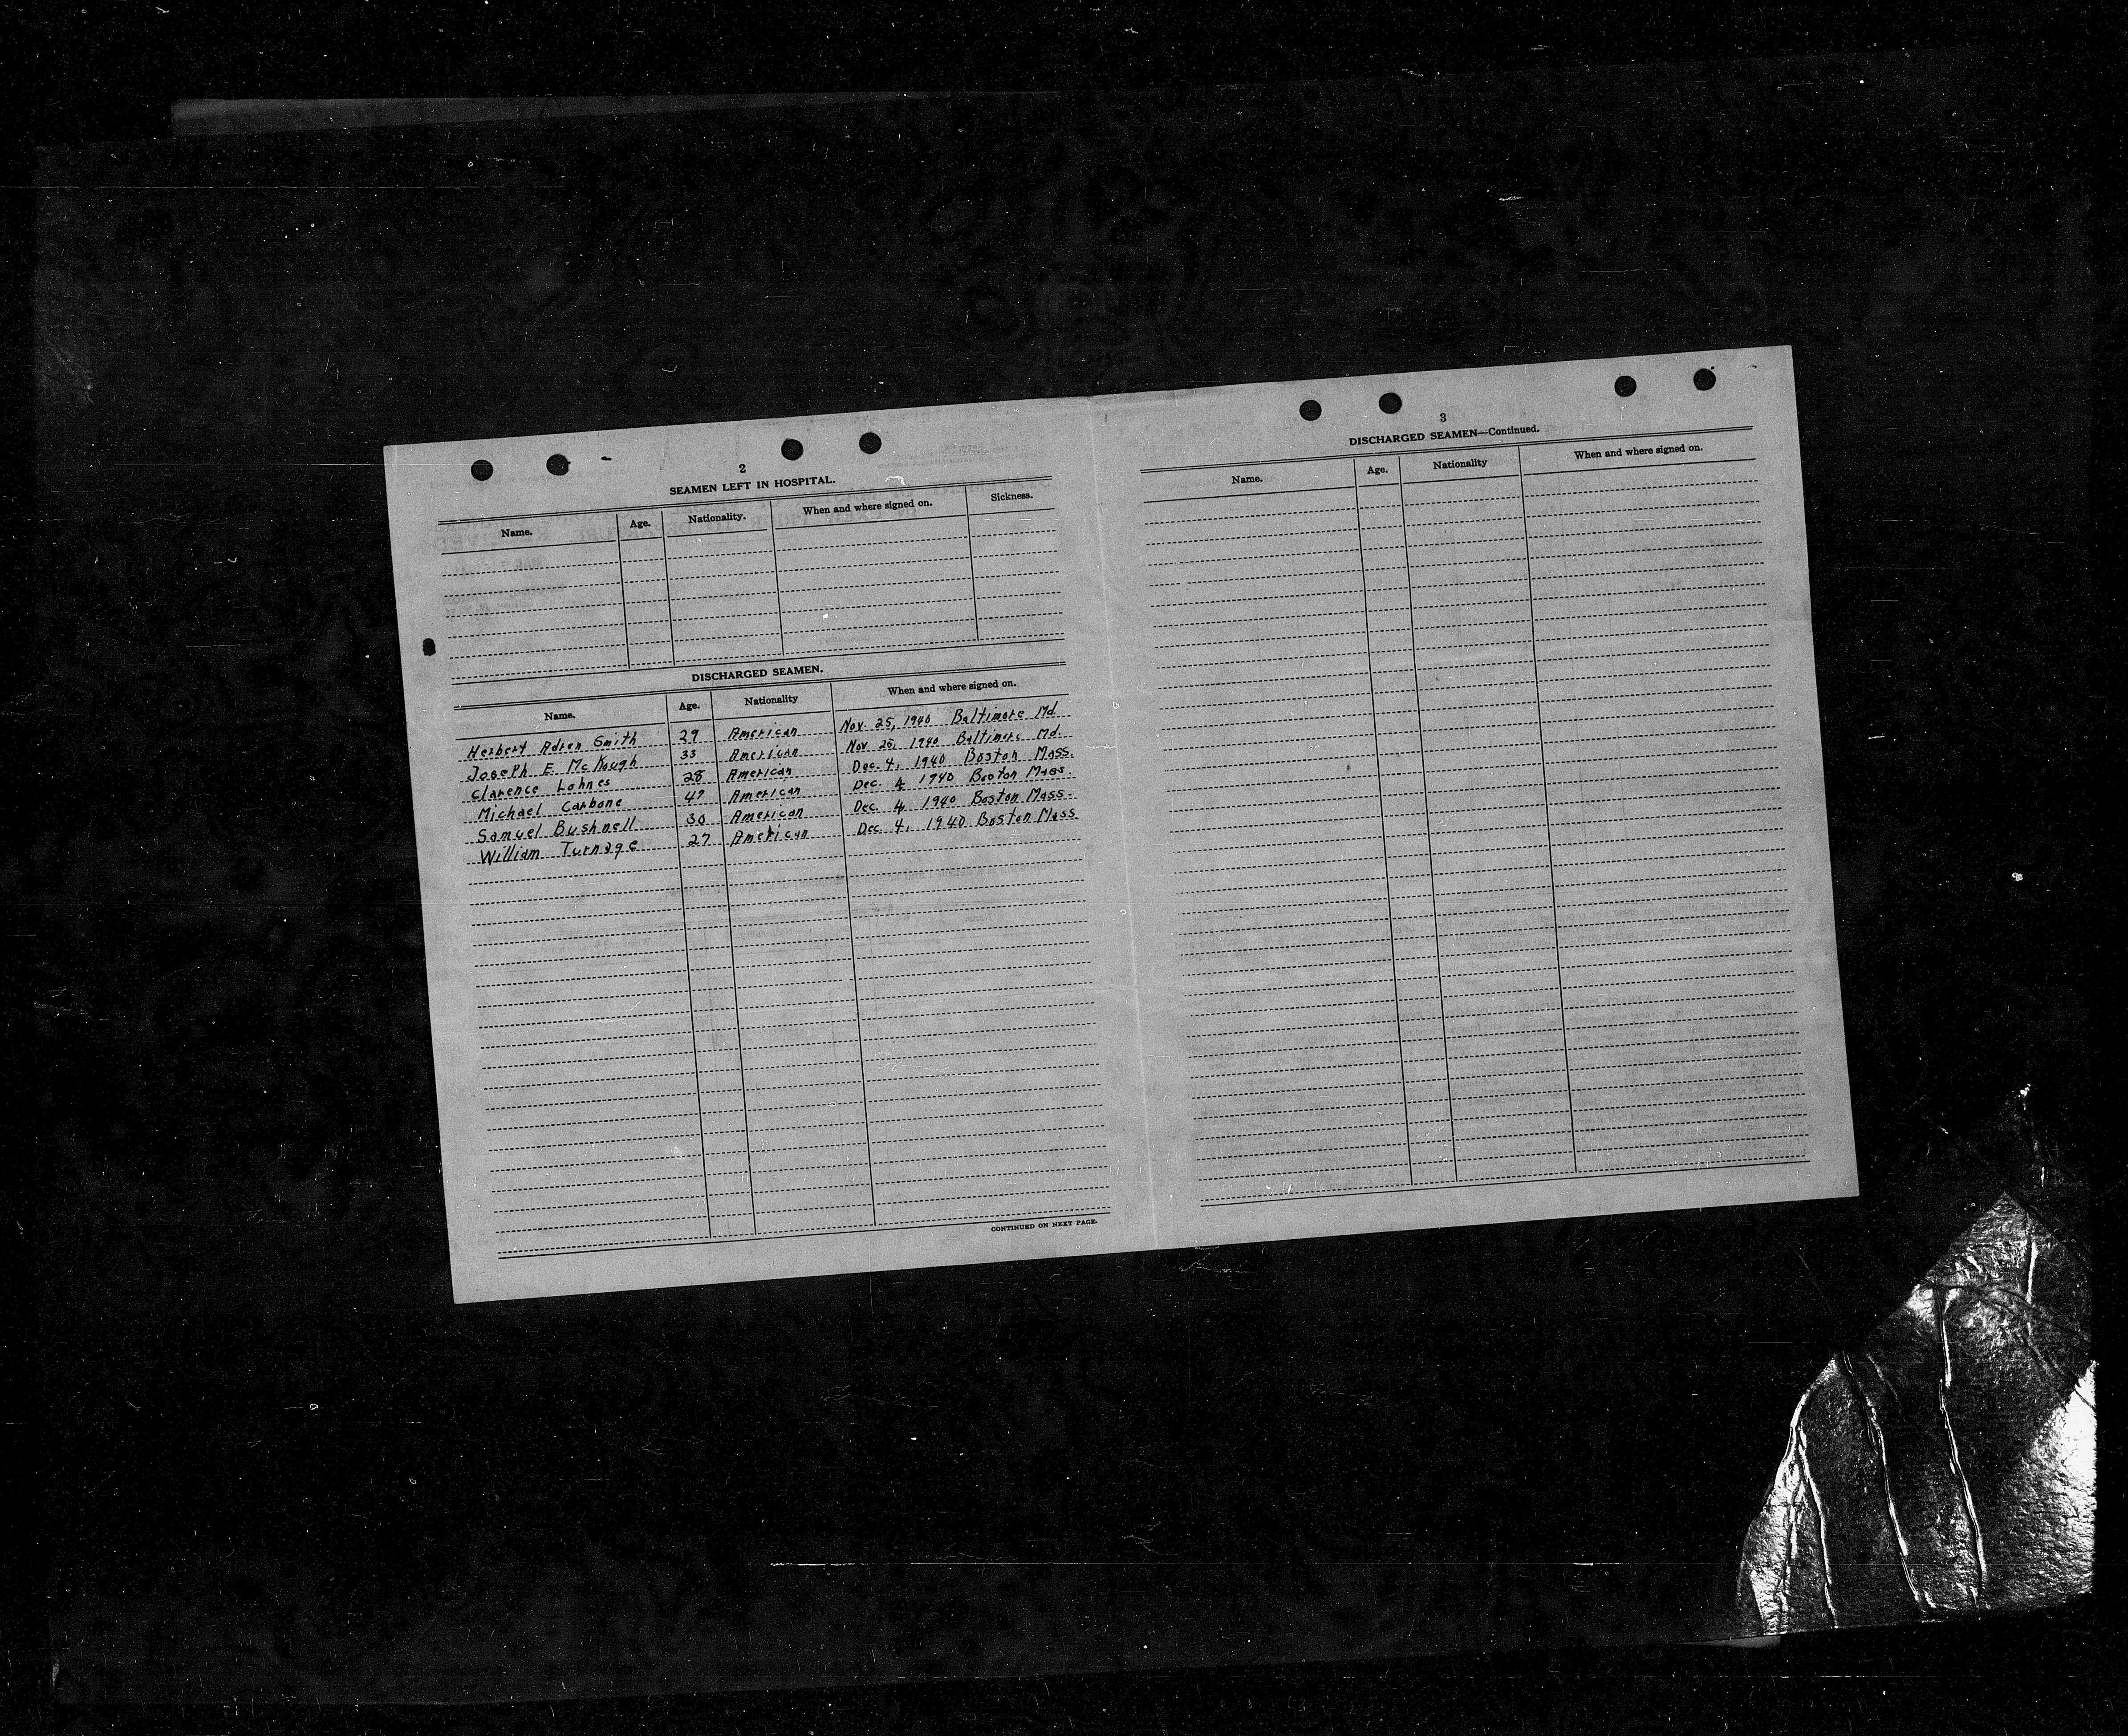 2
SEAMEN LEFT IN HOSPITAL.
Name. Age. Nationality. When and where signed on. Sickness.
DISCHARGED SEAMEN.
Name. Age. Nationality When and where signed on.
Herbert Adren Smith 29 American Nov. 25, 1940 Baltimore Md.
Joseph E. McKough 33 American Nov 25, 1940 Baltimore Md.
Clarence Lohnes 28 American Dec. 4, 1940 Boston Mass.
Michael Carbone American Dec. 4 1940 Boston Mass.
Samuel Bushnell 30 American Dec. 4 1940 Boston Mass.
William Turnage 27 American Dec. 4, 1940 Boston Mass
CONTINUED ON NEXT PAGE.
3
DISCHARGED SEAMEN—Continued.
Name. Age. Nationality When and where signed on.